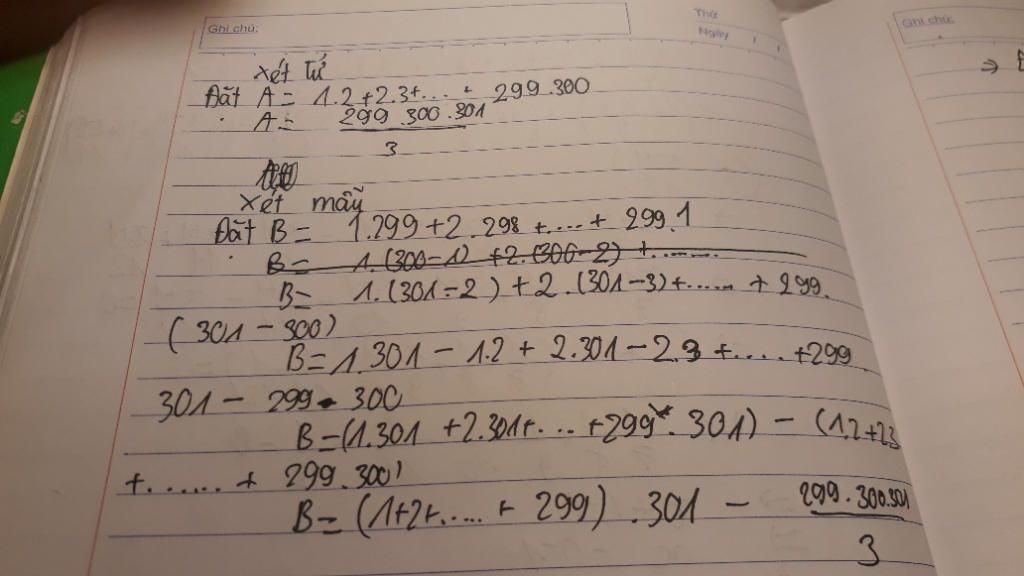 Ghi chú:
Thứ
Ngày / /
Ghi chú:
Xét Tử
Đặt A = 1.2 + 2.3 + ... + 299.300
A = 299.300.301
3
Xét mẫu
Đặt B = 1.299 + 2.298 + .... + 299.1
B = 1.(300-1) + 2.(300-2) + .......
B = 1.(301-2) + 2.(301-3) + ...... + 299.
(301 - 300)
B = 1.301 - 1.2 + 2.301 - 2.3 + ..... + 299
301 - 299.300
B = (1.301 + 2.301 + ... + 299.301) - (1.2 + 2.3
+ ...... + 299.300)
B = (1+2+ ..... + 299).301 - 299.300.301
3